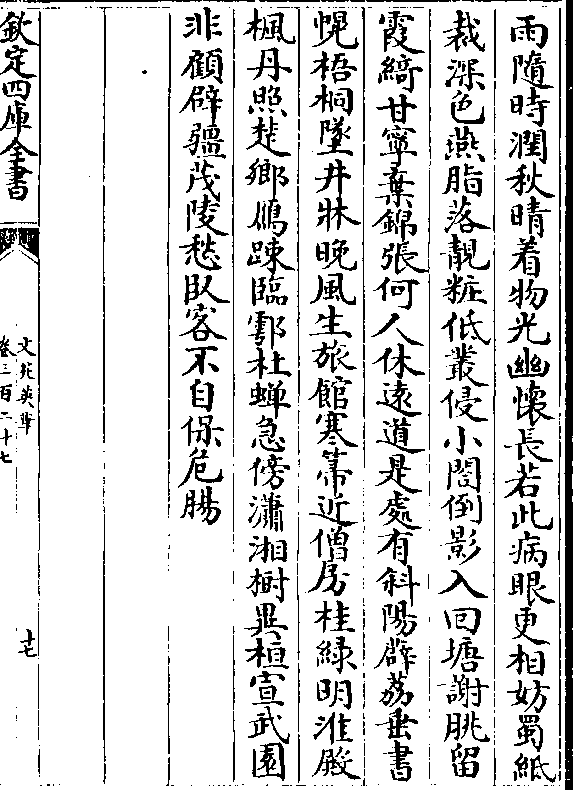 雨隨時潤秋晴着物光幽懷長若此病眼更相妨蜀紙
裁深色燕脂落靚粧低叢侵小閤倒影入囘塘謝朓留
霞綺甘寧棄錦張何人休遠道是處有斜陽薜荔垂書
幌梧桐墜井牀晚風生旅館寒籟近僧房桂緑明淮殿
楓丹照楚鄉鴈踈臨鄠杜蟬急傍瀟湘樹異桓宣武園
非顧辟疆茂陵愁臥客不自保危腸
欽定四庫全書
文苑英華
卷三百二十七
十七